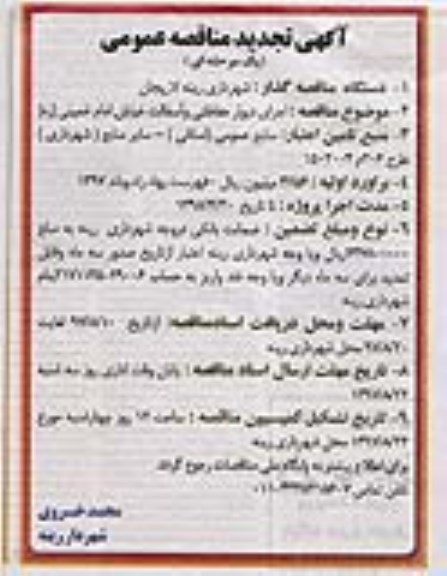 آگهی تجدید مناقصه عمومی
(یک مرحله ای)
۱- دستگاه مناقصه گذار: شهرداری رینه لاریجان
۲- موضوع مناقصه: اجرای دیوار حفاظتی وآسفالت خیابان امام خمینی (ره)
۳- منبع تامین اعتبار: منابع عمومی (استانی) – سایر منابع (شهرداری)
طرح
۴- برآورد اولیه: میلیون ریال -فهرست بهاء راه وباند ۱۳۹۷
۵- مدت اجرا پروژه: تا تاریخ
۶- نوع ومبلغ تضمین: ضمانت بانکی دروجه شهرداری رینه به مبلغ
ریال ویا وجه شهرداری رینه اعتبار ازتاریخ صدور سه ماه وقابل
تمدید برای سه ماه دیگر ویا وجه نقد واریز به حساب بنام
شهرداری رینه
۷- مهلت ومحل دریافت اسنادمناقصه: ازتاریخ ۹۷/۸/۱۰ لغایت
۹۷/۸/۲۰ محل شهرداری رینه
۸- تاریخ مهلت ارسال اسناد مناقصه: پایان وقت اداری روز سه شنبه
۹- تاریخ تشکیل کمیسیون مناقصه: ساعت روز چهارشنبه مورخ
۱۳۹۷/۸/۲۳ محل شهرداری رینه
برای اطلاع بیشتر به پایگاه ملی مناقصات رجوع گردد.
تلفن تماس
محمد خسروی
شهردار رینه